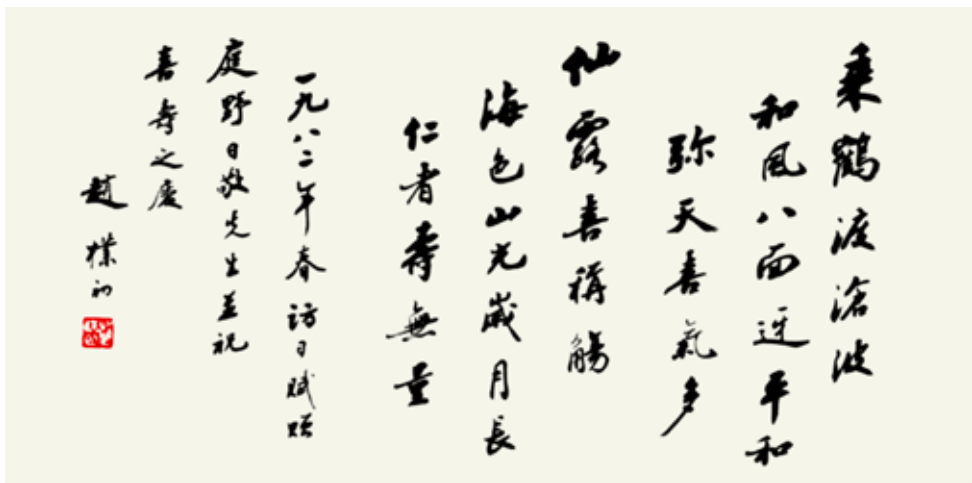 乘鶴渡滄波
和風八面迓平和
弥天喜氣多
仙露喜稱觴
海色山光歲月長
仁者壽無量
一九八二年春訪日賦贈
庭野日敬先生並祝
喜壽之慶
趙樸初